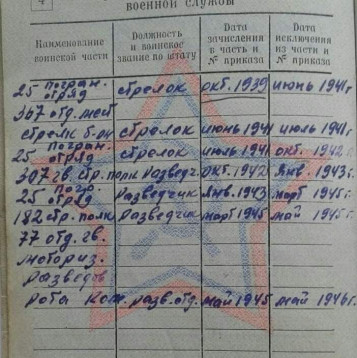 4
военной службы
Наименование воинской части
Должность и воинское звание по штату
Дата зачисления в часть и № приказа
Дата исключения из части и № приказа
25 погран. отряд стрелок окт. 1939 июнь 1941г
367 отд. мест
стрелк б-он стрелок июнь 1941 июль 1941г.
25 погран. отряд стрелок июль 1941 окт. 1942г.
307 гв. стр. полк разведч. окт. 1942 янв. 1943г.
25 погр. отряд разведчик янв. 1943 март 1945г.
182 стр. полк разведчик март 1945 май 1945г.
77 отд. гв.
моториз.
разведов
рота ком. разв. отд. май 1945 май 1946г.